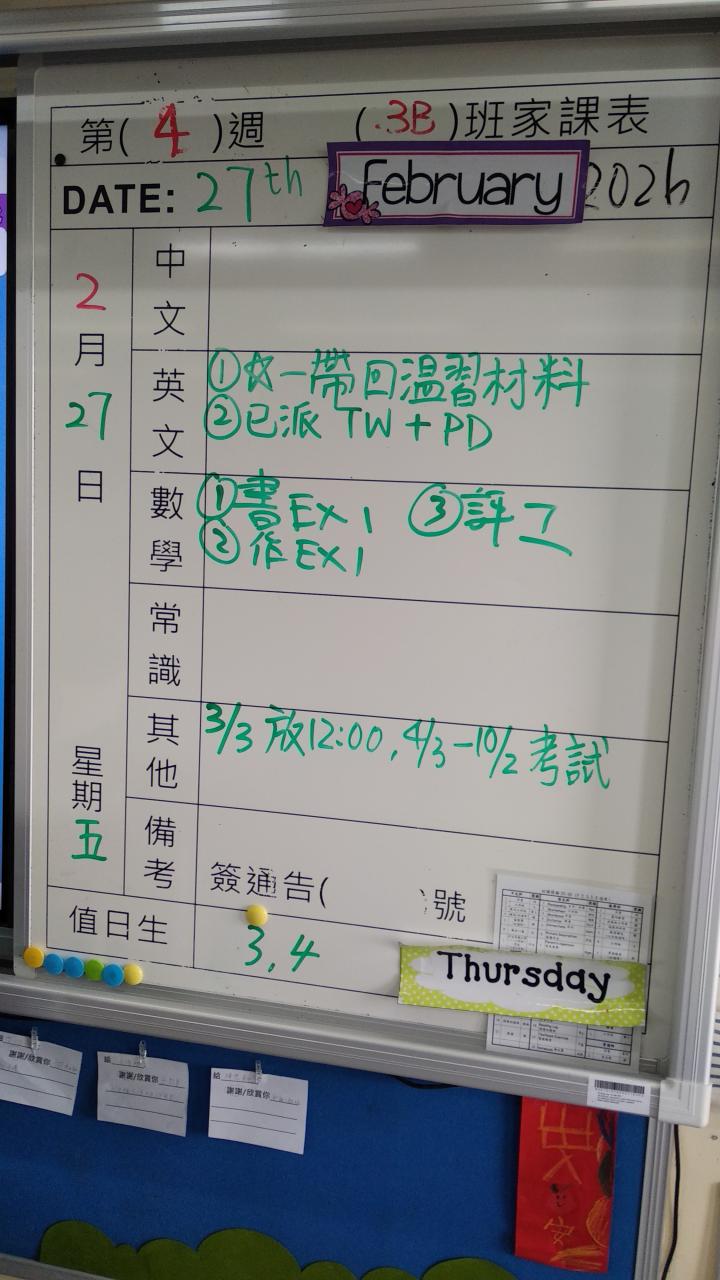 第( 4 )週 ( 3B )班家課表
DATE: 27th February 2026
2月27日 星期五
中文
英文
①☆一帶回温習材料
②已派 TW + PD
數學
①書EX 1 ③評 7
②作EX 1
常識
其他
3/3 放12:00, 4/3 - 10/2 考試
備考
簽通告( 號
值日生
3, 4
Thursday
謝謝/欣賞你
給 謝謝/欣賞你
給 謝謝/欣賞你